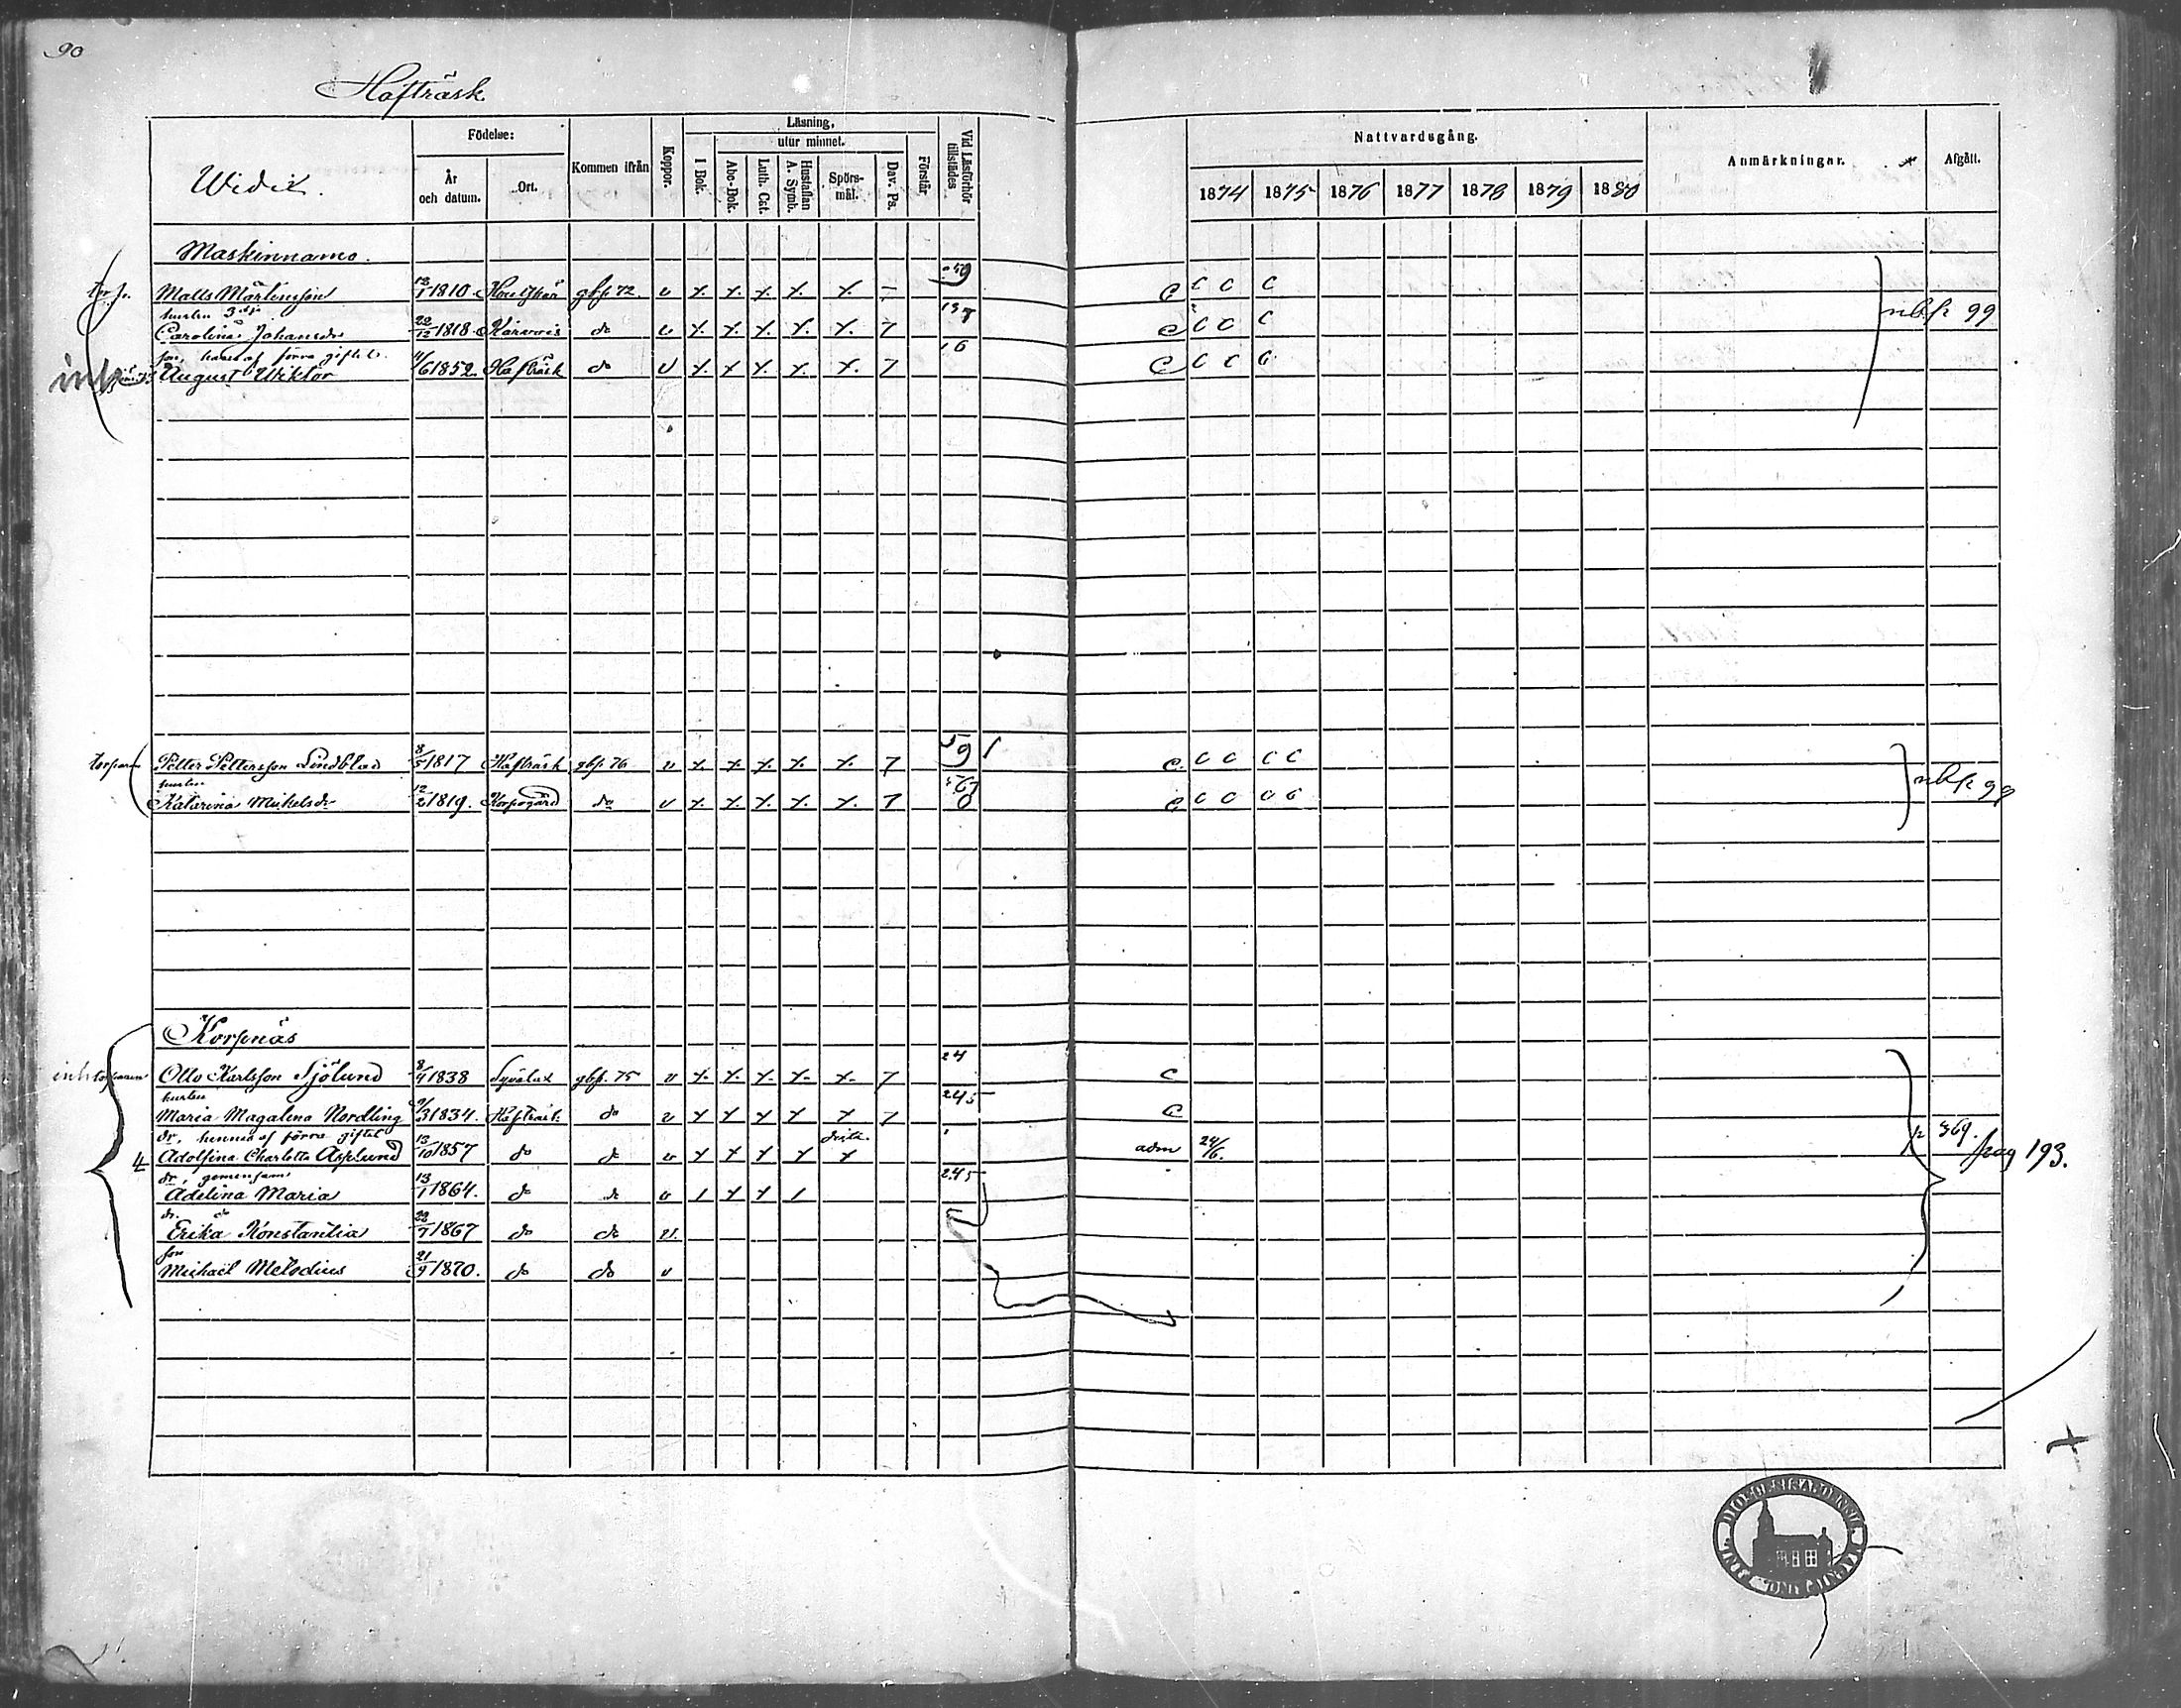 90
Hafträsk
Widik.
Födelse:
År och datum.
Ort.
Kommen ifrån
Koppor.
Läsning,
utur minnet.
I Bok.
Abc-Bok.
Luth. Cat.
Hustaflan A. Symb.
Spörs-mål.
Dav. Ps.
Förstår
Vid Läsförhör tillstädes
Nattvardsgång.
1874 1875 1876 1877 1878 1879 1880
Anmärkningar.
Afgått.
Maskinnamo.
Matts Mårtensson 1810. gbp. 72. v x. x. x. x. x. 7 c c c c
hustru 3dje
Carolina Johansdr 22/12 1818. do v x. x. x. x. x. 7 c c c c nbp 99
son, hans af förra giftet.
August Wiktor 11/6 1852 Hafträsk do v x x x. x. x. 7 c c c c
torparen Petter Pettersson Lindblad 8/5 1817 Hafträsk gbp. 76 v x. x. x. x. x. 7 59 c. c c c c
hustru
Katarina Mikelsdr 12/2 1819. Korpogård do v x. x. x. x. x. 7 c c c c c nbp 99
Korpnäs
inh torparen Otto Karlsson Sjölund 8/4 1838 gbp. 75 v x. x. x. x. x. 7 24 c
hustru
Maria Magalena Nordling 9/3 1834. Hafträsk do v x x x x x 7 245 c
dr, hennes af förra giftet
Adolfina Charlotta Asplund 13/10 1857 do do v x x x x x adm 24/6. p 369. pag 193.
dr, gemensam
Adelina Maria 13/1 1864. do do v 1 x x 1 245
dr. do
Erika Konstantia 22/7 1867 do do v.
son
Mikael Melodius 21/9 1870. do do v